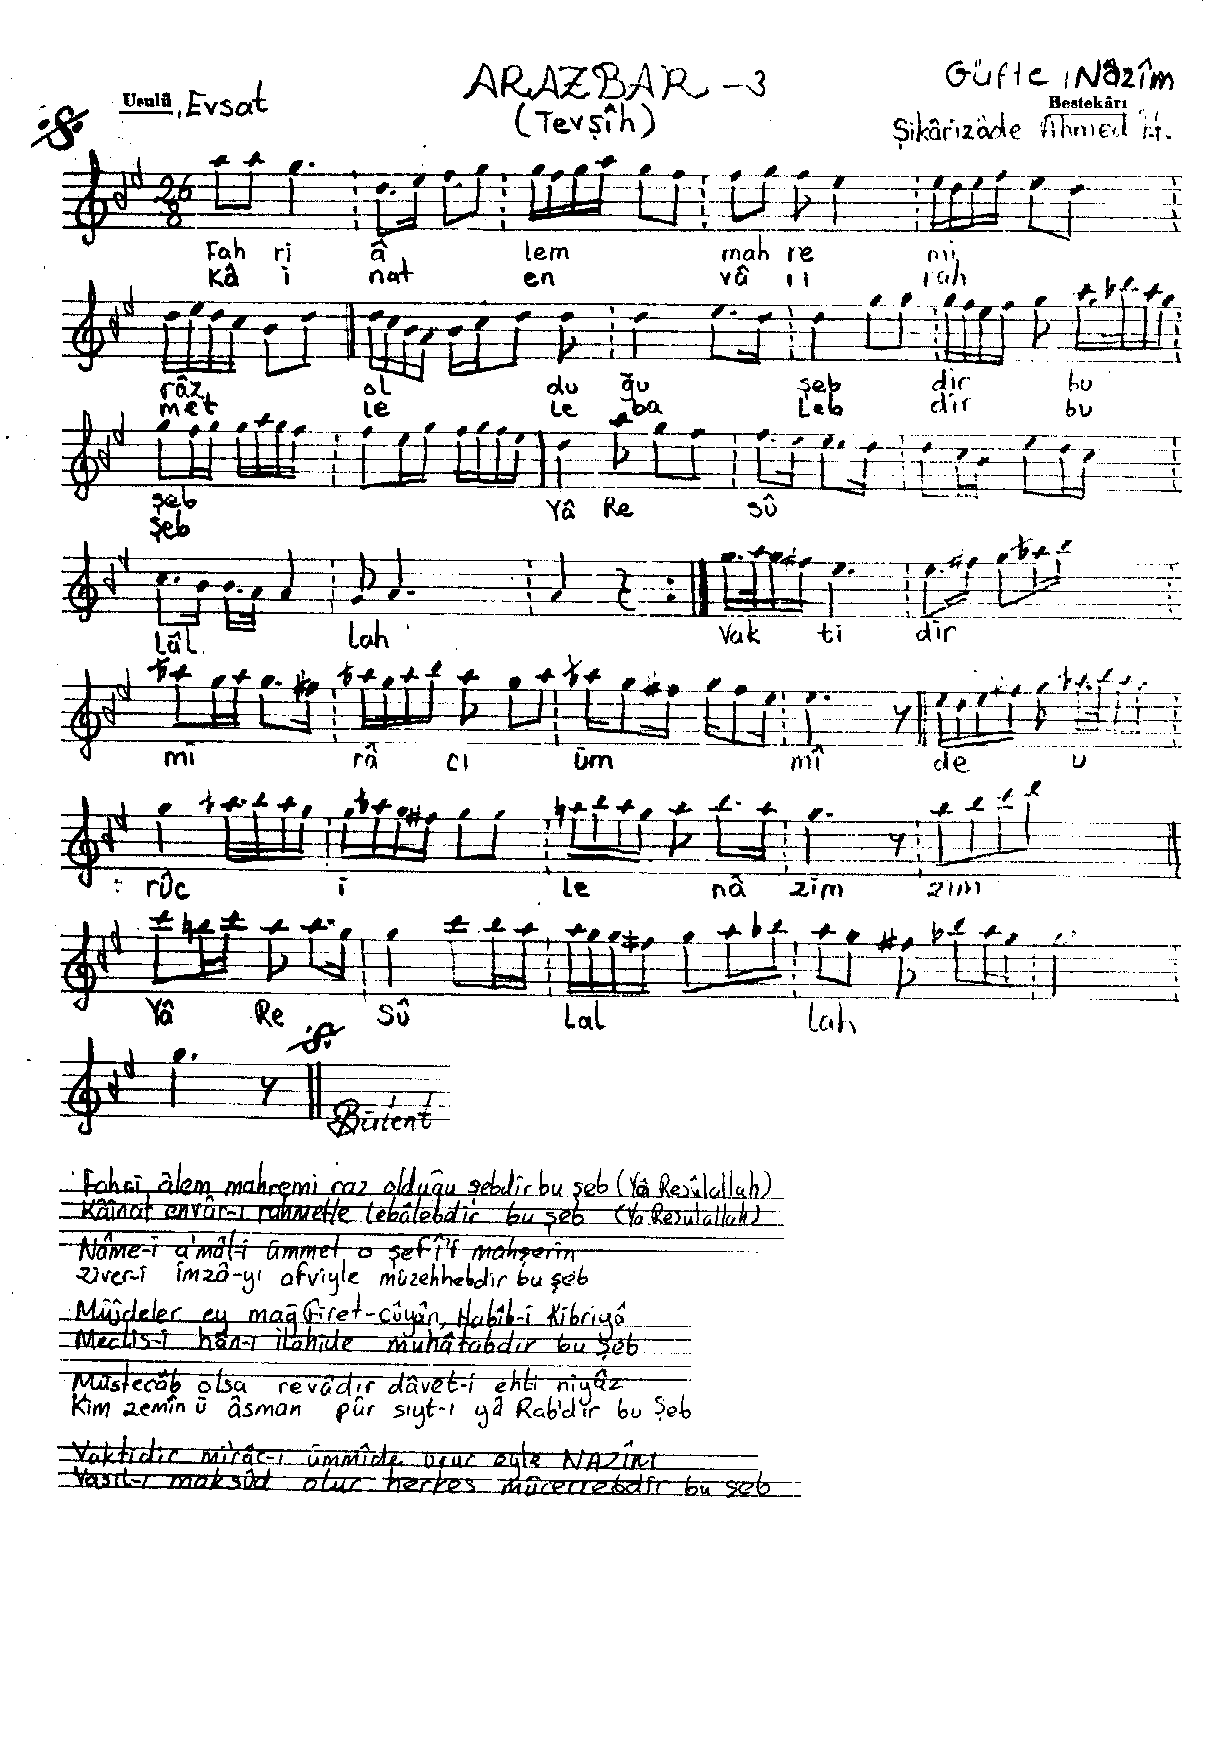 ARAZBAR -3
Güfte : Nâzîm
Usulü : Evsat
(Tevşîh)
Bestekârı
Şikârizâde Ahmed H.
26 8
Fah ri â lem mah re mi
Kâ i nat en vâ ri rah
râz ol du ğu şeb dir bu
met le le ba leb dir bu
şeb Yâ Re sû
şeb
lâl lah Vak ti dir
mi râ ci üm mî de u
rûc i le nâ zim zim
Yâ Re sû lal lah
Bülent
Fahri âlem mahremi raz olduğu şebdir bu şeb (Yâ Resûlallah)
Kâinat envâr-ı rahmetle lebâlebdir bu şeb (Ya Resulallah)
Nâme-i a'mâl-i ümmet o şef-î'i mahşerin
Ziver-i imzâ-yı afviyle müzehhebdir bu şeb
Müjdeler ey mağfiret-cûyân, Habîb-i Kibriyâ
Meclis-i hân-ı ilahide muhâtabdır bu şeb
Müstecâb olsa revâdır dâvet-i ehli niyâz
Kim zemîn ü âsman pûr sıyt-ı yâ Rab'dir bu şeb
Vaktidir mirâc-ı ümmîde uruc eyle NAZÎMİ
Vasıl-ı maksûd olur herkes mücerrebdir bu şeb